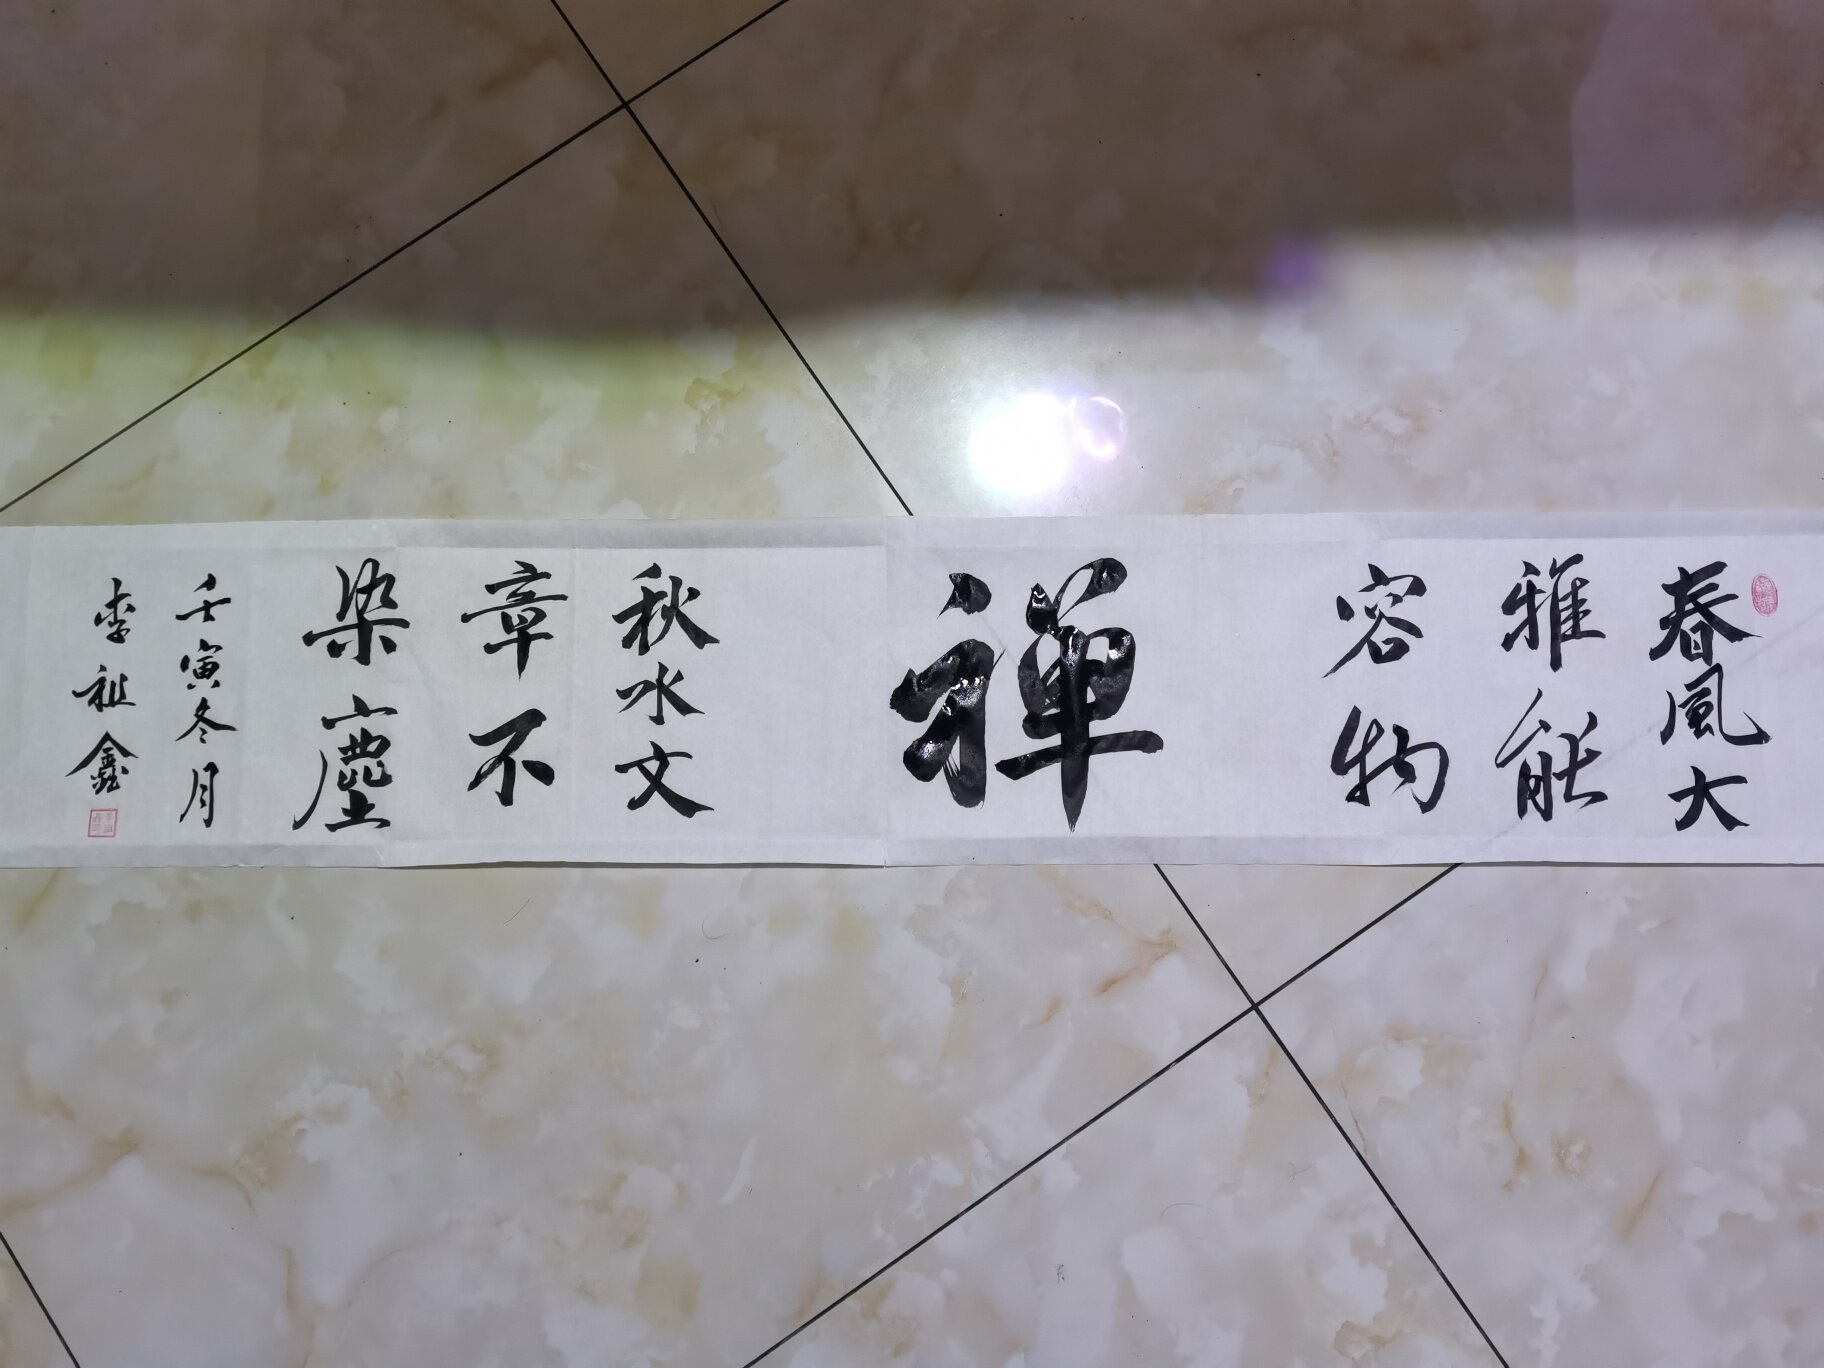 春風大
雅能
容物
禅
秋水文
章不
染塵
壬寅冬月
李祖鑫